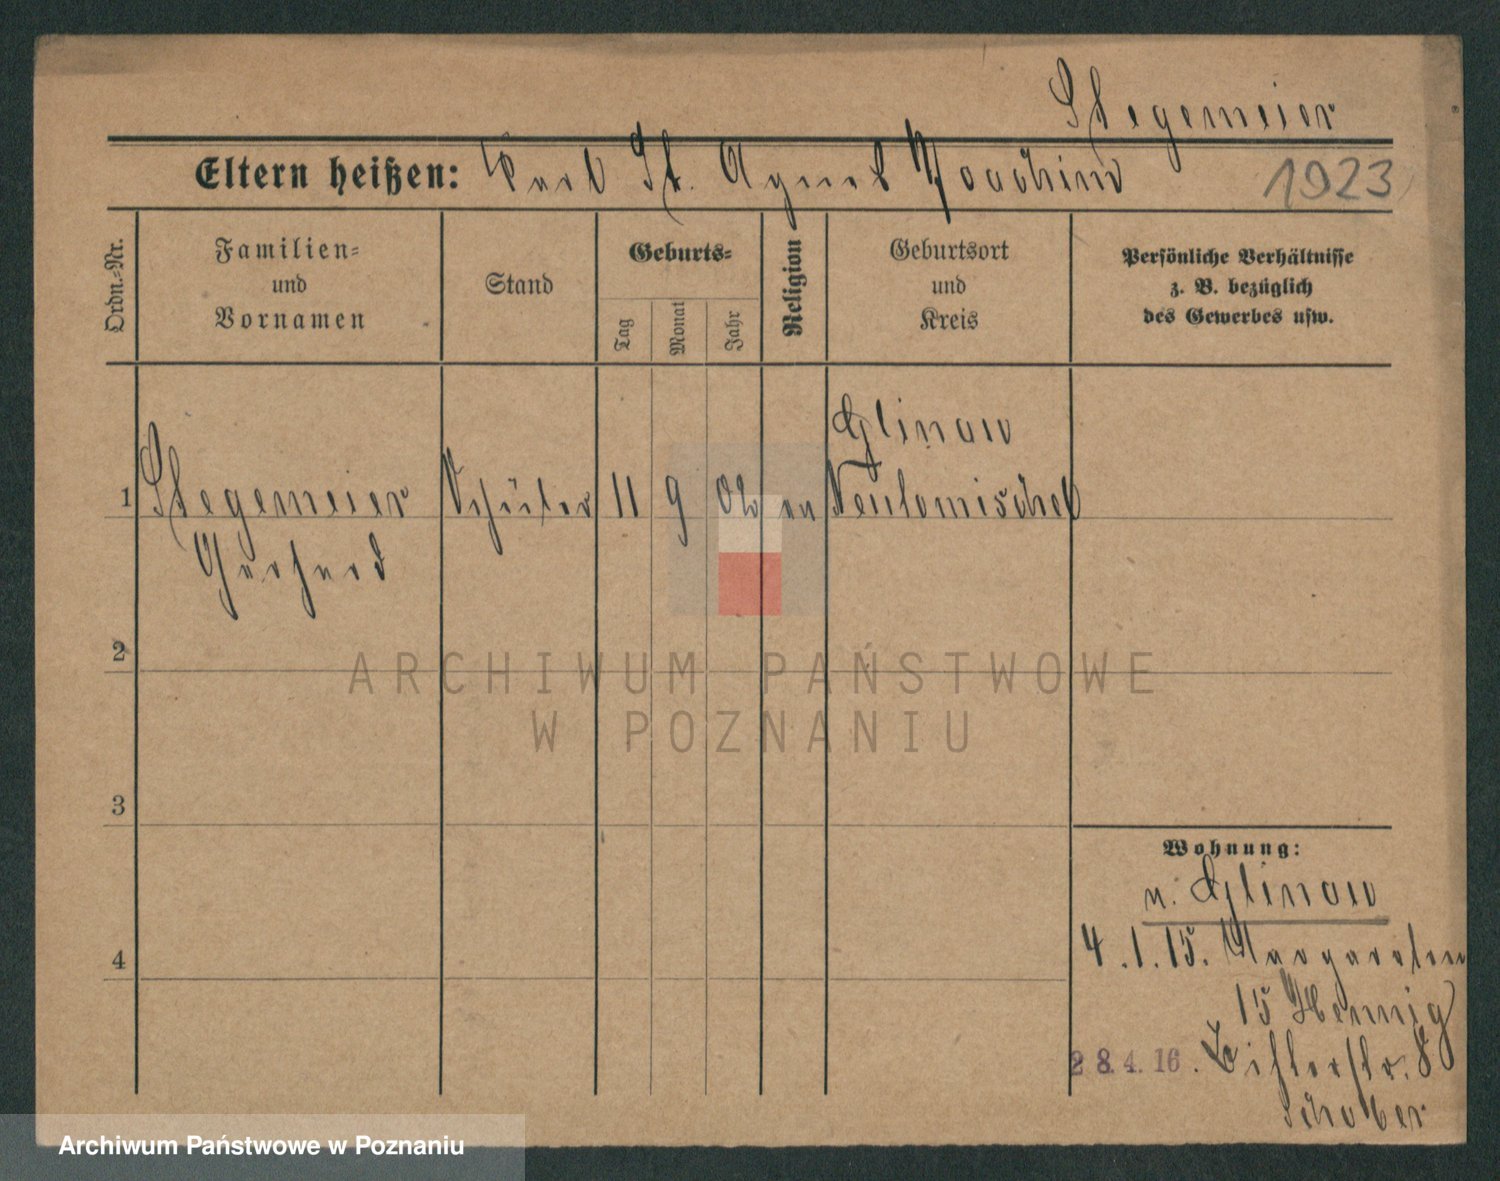 Stegemeier
Eltern heißen: Karl St. Agnes Joachim 1923
Ordn.-Nr.
Familien-
und
Vornamen
Stand
Geburts-
Tag
Monat
Jahr
Religion
Geburtsort
und
Kreis
Persönliche Verhältnisse
z. B. bezüglich
des Gewerbes usw.
Glinau
1 Stegemeier Schüler 11 9 02 ev Neutomischel
Gerhard
2
3
4
Wohnung:
n. Glinau
4.1.15. Margareten
15 Hennig
28.4.16.
Schober
ARCHIWUM PAŃSTWOWE
W POZNANIU
Archiwum Państwowe w Poznaniu